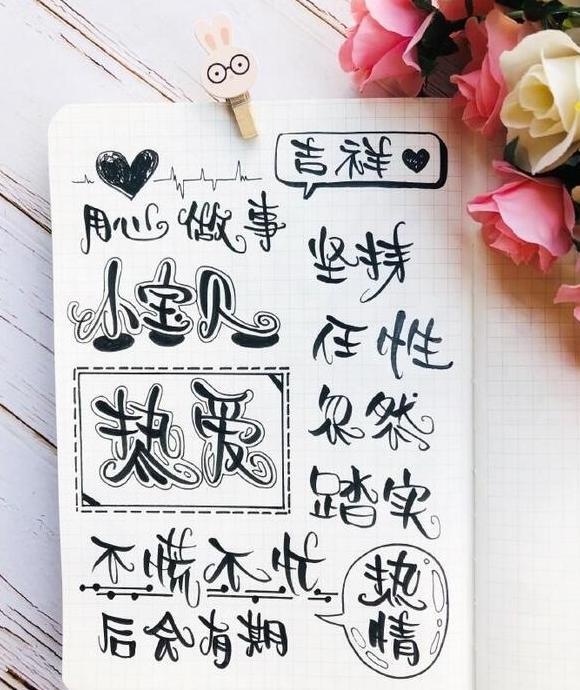 吉祥
用心做事
坚持
小宝贝
任性
热爱
忽然
踏实
不慌不忙
热情
后会有期